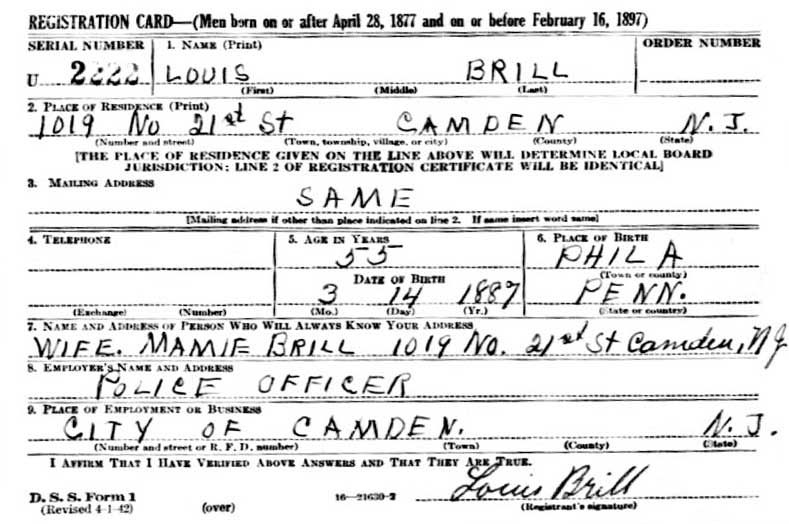 REGISTRATION CARD—(Men born on or after April 28, 1877 and on or before February 16, 1897)
SERIAL NUMBER 1. NAME (Print) ORDER NUMBER
U 2222 LOUIS BRILL
(First) (Middle) (Last)
2. PLACE OF RESIDENCE (Print)
1019 No 21st St CAMDEN N.J.
(Number and street) (Town, township, village, or city) (County) (State)
[THE PLACE OF RESIDENCE GIVEN ON THE LINE ABOVE WILL DETERMINE LOCAL BOARD
JURISDICTION; LINE 2 OF REGISTRATION CERTIFICATE WILL BE IDENTICAL]
3. MAILING ADDRESS
SAME
[Mailing address if other than place indicated on line 2. If same insert word same]
4. TELEPHONE 5. AGE IN YEARS 6. PLACE OF BIRTH
55 PHILA
DATE OF BIRTH (Town or county)
3 14 1887 PENN.
(Exchange) (Number) (Mo.) (Day) (Yr.) (State or country)
7. NAME AND ADDRESS OF PERSON WHO WILL ALWAYS KNOW YOUR ADDRESS
WIFE. MAMIE BRILL 1019 No. 21st St Camden, NJ
8. EMPLOYER'S NAME AND ADDRESS
POLICE OFFICER
9. PLACE OF EMPLOYMENT OR BUSINESS
CITY OF CAMDEN. N.J.
(Number and street or R. F. D. number) (Town) (County) (State)
I AFFIRM THAT I HAVE VERIFIED ABOVE ANSWERS AND THAT THEY ARE TRUE.
Louis Brill
D. S. S. Form 1 16—21630-2
(Revised 4-1-42) (over) (Registrant's signature)